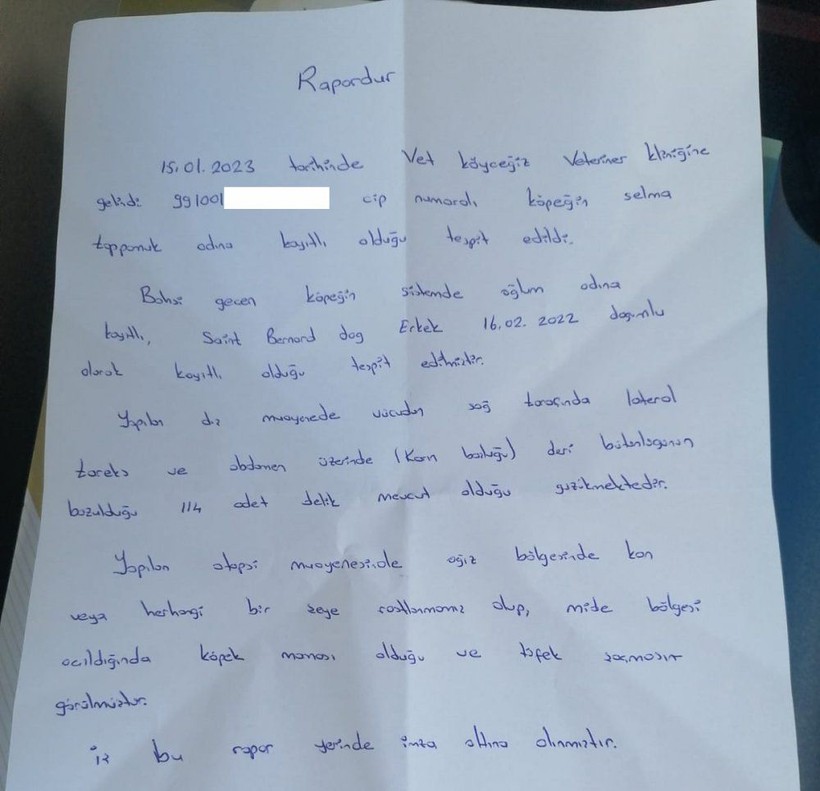 Rapordur
15.01.2023 tarihinde Vet köyceğiz Veteriner kliniğine
gelindi 991001 cip numaralı köpeğin selma
topparmak adına kayıtlı olduğu tespit edildi.
Bahsi gecen köpeğin sistemde oğlum adına
kayıtlı, Saint Bernard dog Erkek 16.02.2022 dogumlu
olarak kayıtlı olduğu tespit edilmiştir.
Yapılan dış muayenede vücudun sağ tarafında lateral
toreks ve abdomen üzerinde (Karın boşluğu) deri bütünlüğünün
bozulduğu 114 adet delik mevcut olduğu gözükmektedir.
Yapılan otopsi muayenesinde ağız bölgesinde kan
veya herhangi bir şeye rastlanmamış olup, mide bölgesi
acıldığında köpek maması olduğu ve tüfek saçması
görülmüştür.
iş bu rapor yerinde imza altına alınmıştır.